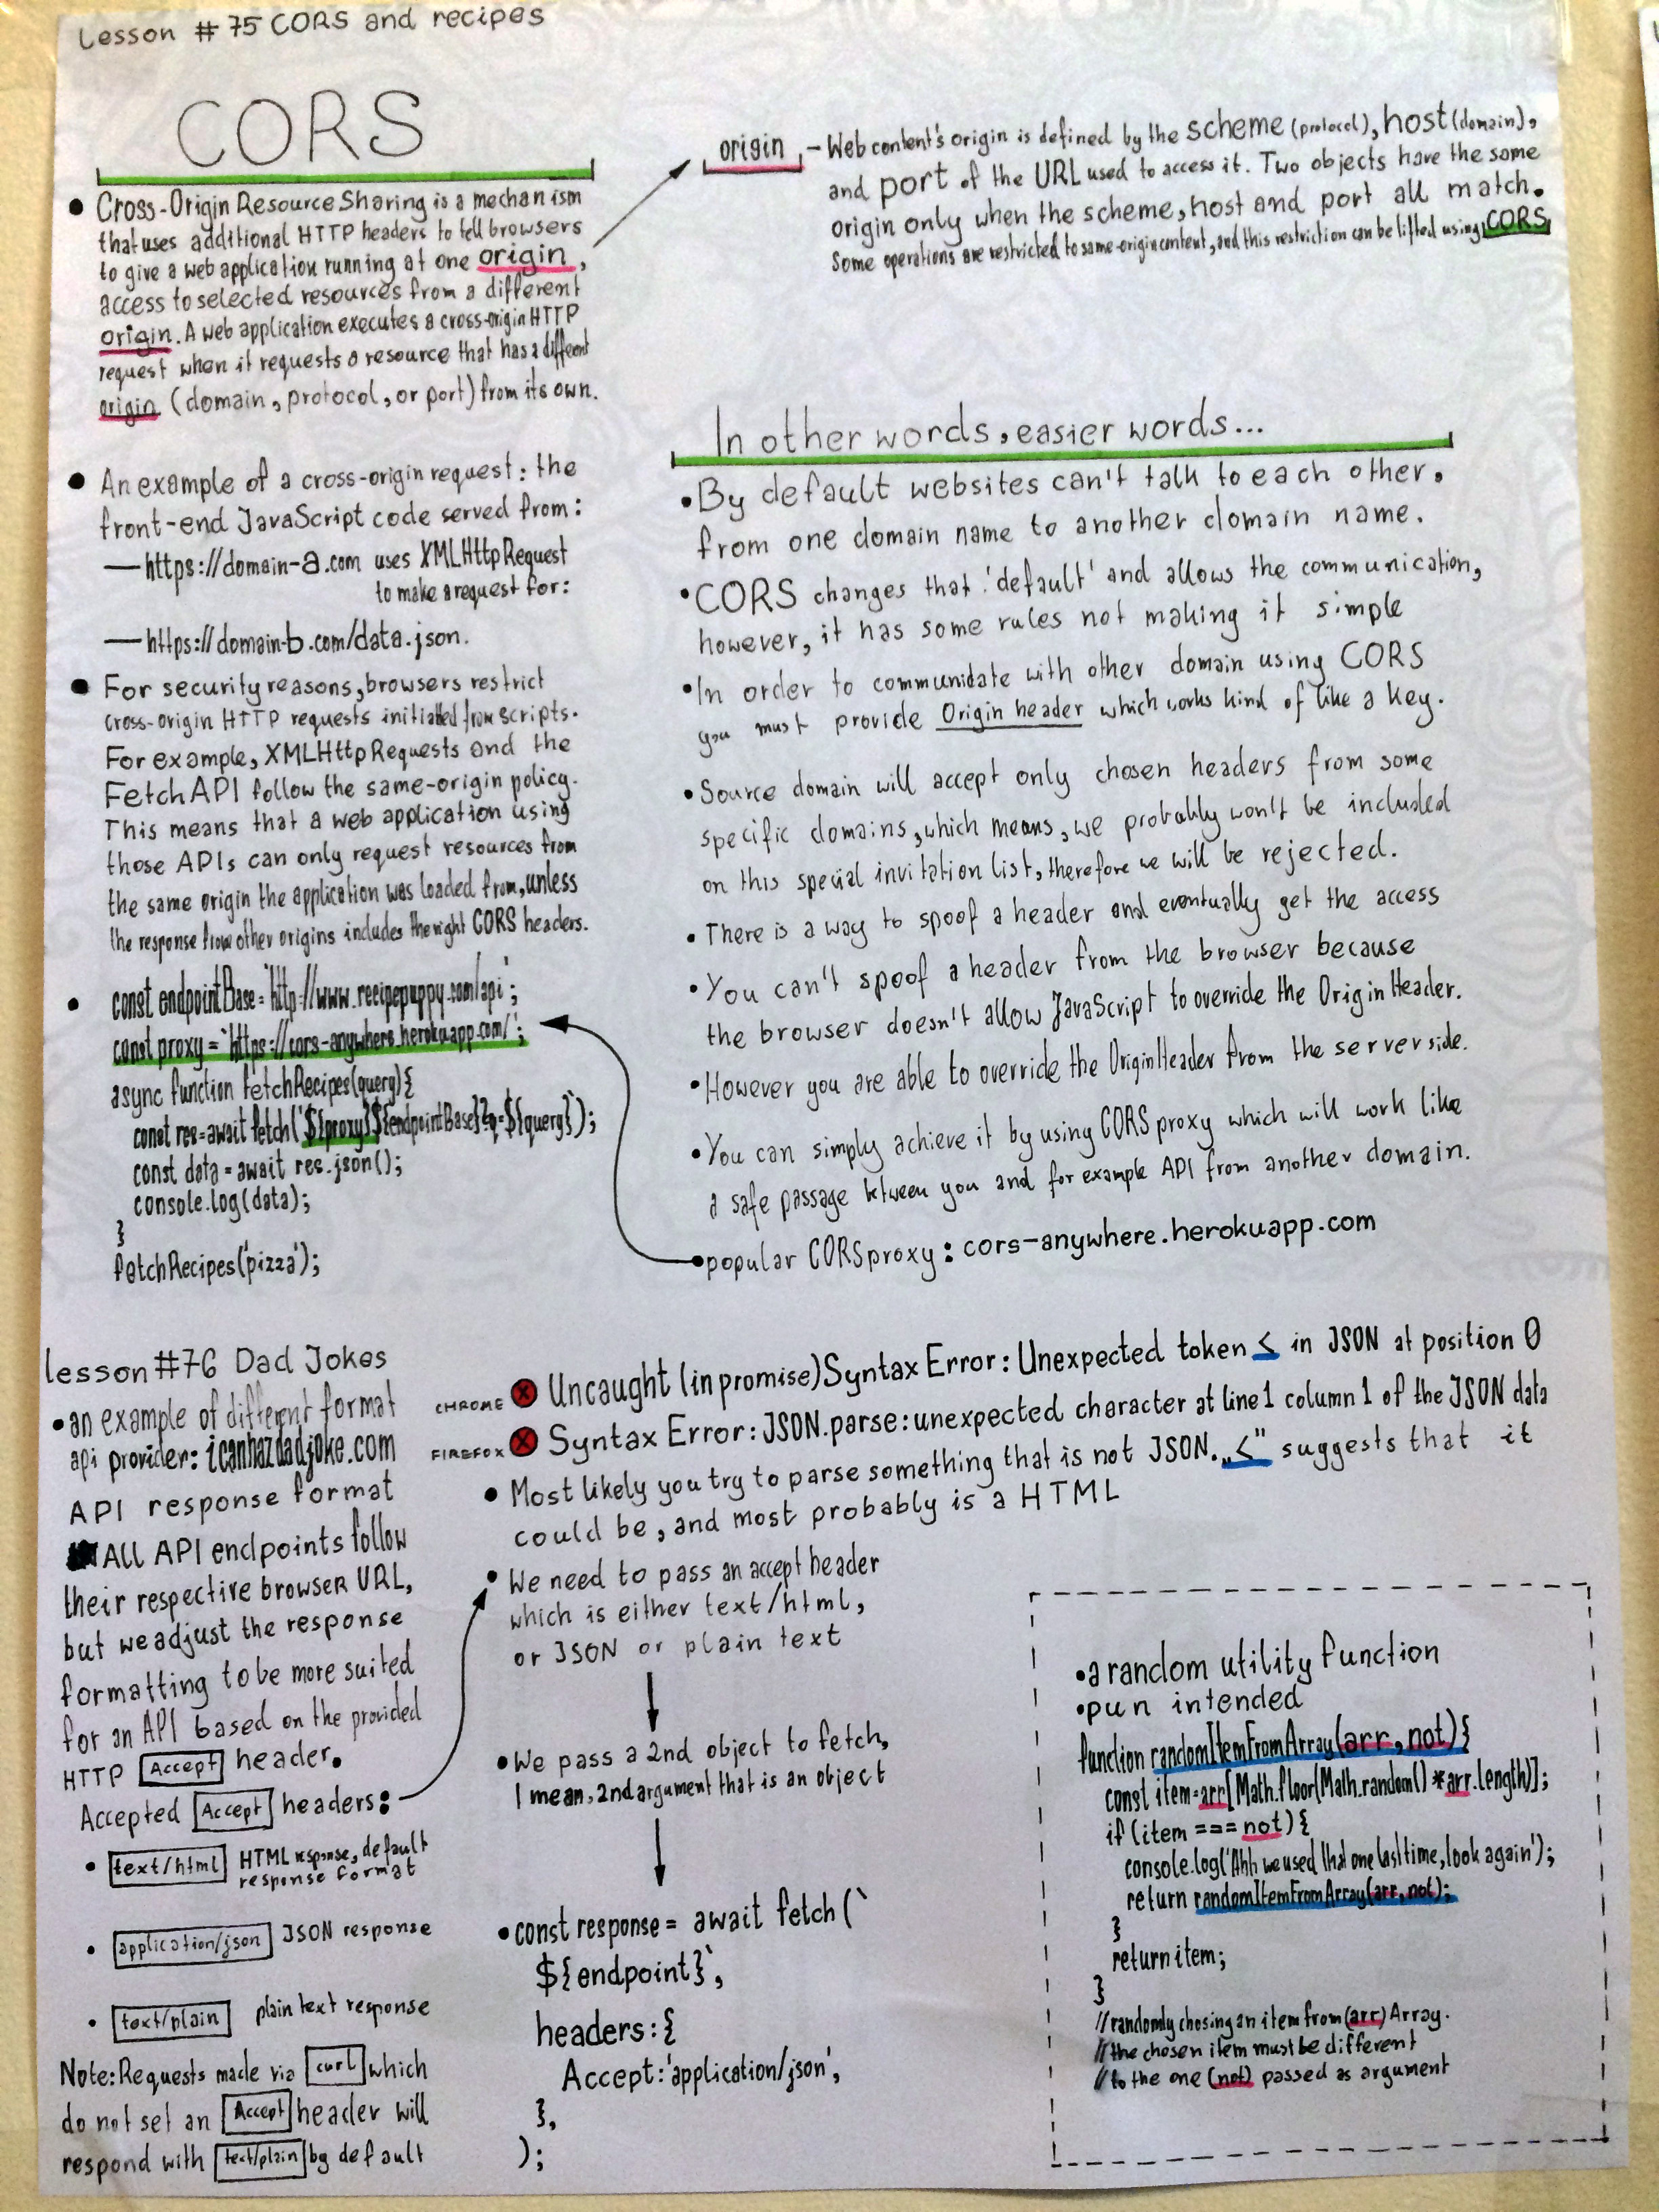 Lesson # 75 CORS and recipes
CORS
• Cross-Origin Resource Sharing is a mechanism
that uses additional HTTP headers to tell browsers
to give a web application running at one origin,
access to selected resources from a different
origin. A web application executes a cross-origin HTTP
request when it requests a resource that has a different
origin (domain, protocol, or port) from its own.
• An example of a cross-origin request: the
front-end JavaScript code served from:
— https://domain-a.com uses XMLHttpRequest
to make a request for:
— https://domain-b.com/data.json.
• For security reasons, browsers restrict
cross-origin HTTP requests initiated from scripts.
For example, XMLHttpRequests and the
Fetch API follow the same-origin policy.
This means that a web application using
those APIs can only request resources from
the same origin the application was loaded from, unless
the response from other origins includes the right CORS headers.
• const endpointBase = 'http://www.recipepuppy.com/api';
const proxy = `https://cors-anywhere.herokuapp.com/`;
async function fetchRecipes(query){
const res = await fetch(`${proxy}${endpointBase}?q=${query}`);
const data = await res.json();
console.log(data);
}
fetchRecipes('pizza');
origin, – Web content's origin is defined by the scheme (protocol), host (domain),
and port of the URL used to access it. Two objects have the same
origin only when the scheme, host and port all match.
Some operations are restricted to same-origin content, and this restriction can be lifted using CORS
In other words, easier words...
• By default websites can't talk to each other,
from one domain name to another domain name.
• CORS changes that 'default' and allows the communication,
however, it has some rules not making it simple
• In order to communidate with other domain using CORS
you must provide Origin header which works kind of like a key.
• Source domain will accept only chosen headers from some
specific domains, which means, we probably won't be included
on this special invitation list, therefore we will be rejected.
• There is a way to spoof a header and eventually get the access
• You can't spoof a header from the browser because
the browser doesn't allow JavaScript to override the Origin Header.
• However you are able to override the Origin Header from the server side.
• You can simply achieve it by using CORS proxy which will work like
a safe passage between you and for example API from another domain.
• popular CORS proxy: cors-anywhere.herokuapp.com
lesson #76 Dad Jokes
• an example of different format
api provider: icanhazdadjoke.com
API response format
All API endpoints follow
their respective browser URL,
but we adjust the response
formatting to be more suited
for an API based on the provided
HTTP Accept header.
Accepted Accept headers:
• text/html HTML response, default
response format
• application/json JSON response
• text/plain plain text response
Note: Requests made via curl which
do not set an Accept header will
respond with text/plain by default
CHROME X Uncaught (in promise) Syntax Error: Unexpected token < in JSON at position 0
FIREFOX X Syntax Error: JSON.parse: unexpected character at line 1 column 1 of the JSON data
• Most likely you try to parse something that is not JSON. „<" suggests that it
could be, and most probably is a HTML
• We need to pass an accept header
which is either text/html,
or JSON or plain text
• We pass a 2nd object to fetch,
I mean, 2nd argument that is an object
• const response = await fetch(`
${endpoint}`,
headers: {
Accept: 'application/json',
},
);
• a random utility function
• pun intended
function randomItemFromArray(arr, not) {
const item = arr[Math.floor(Math.random() * arr.length)];
if (item === not) {
console.log('Ahh we used that one last time, look again');
return randomItemFromArray(arr, not);
}
return item;
}
// randomly chosing an item from (arr) Array.
// the chosen item must be different
// to the one (not) passed as argument